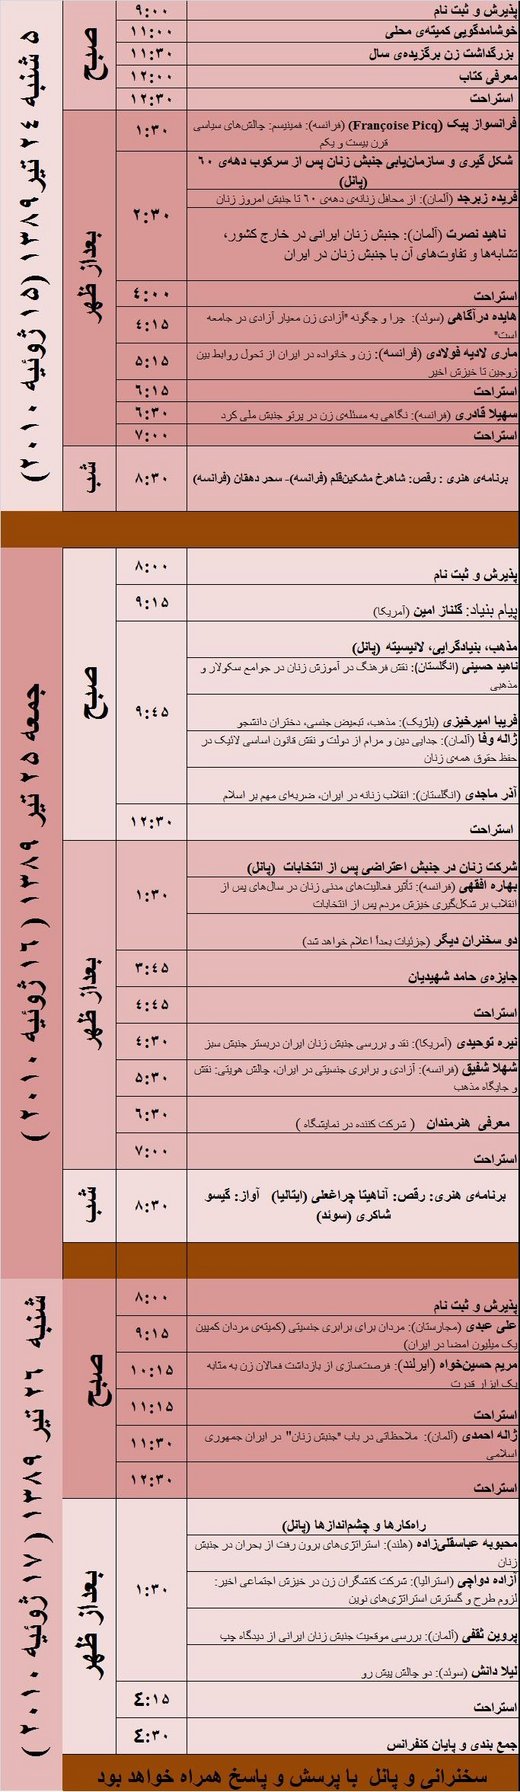 ۵ شنبه ۲۴ تیر ۱۳۸۹ (۱۵ ژوئیه ۲۰۱۰)
صبح
۹:۰۰ پذیرش و ثبت نام
۱۱:۰۰ خوشامدگویی کمیته‌ی محلی
۱۱:۳۰ بزرگداشت زن برگزیده‌ی سال
۱۲:۰۰ معرفی کتاب
۱۲:۳۰ استراحت
بعداز ظهر
۱:۳۰ فرانسواز پیک (Françoise Picq) (فرانسه): فمینیسم: چالش‌های سیاسی
قرن بیست و یکم
۲:۳۰ شکل گیری و سازمان‌یابی جنبش زنان پس از سرکوب دهه‌ی ۶۰
(پانل)
فریده زبرجد (آلمان): از محافل زنانه‌ی دهه‌ی ۶۰ تا جنبش امروز زنان
ناهید نصرت (آلمان): جنبش زنان ایرانی در خارج کشور،
تشابه‌ها و تفاوت‌های آن با جنبش زنان در ایران
۴:۰۰ استراحت
۴:۱۵ هایده درآگاهی (سوئد): چرا و چگونه "آزادی زن معیار آزادی در جامعه
است"
۵:۱۵ ماری لادیه فولادی (فرانسه): زن و خانواده در ایران از تحول روابط بین
زوجین تا خیزش اخیر
۶:۱۵ استراحت
۶:۳۰ سهیلا قادری (فرانسه): نگاهی به مسئله‌ی زن در پرتو جنبش ملی کرد
۷:۰۰ استراحت
شب
۸:۳۰ برنامه‌ی هنری : رقص: شاهرخ مشکین‌قلم (فرانسه)- سحر دهقان (فرانسه)
جمعه ۲۵ تیر ۱۳۸۹ ( ۱۶ ژوئیه ۲۰۱۰ )
صبح
۸:۰۰ پذیرش و ثبت نام
۹:۱۵ پیام بنیاد: گلناز امین (آمریکا)
۹:۴۵ مذهب، بنیادگرایی، لائیسیته (پانل)
ناهید حسینی (انگلستان): نقش فرهنگ در آموزش زنان در جوامع سکولار و
مذهبی
فریبا امیرخیزی (بلژیک): مذهب، تبعیض جنسی، دختران دانشجو
ژاله وفا (آلمان): جدایی دین و مرام از دولت و نقش قانون اساسی لائیک در
حفظ حقوق همه‌ی زنان
آذر ماجدی (انگلستان): انقلاب زنانه در ایران، ضربه‌ای مهم بر اسلام
۱۲:۳۰ استراحت
بعداز ظهر
۱:۳۰ شرکت زنان در جنبش اعتراضی پس از انتخابات (پانل)
بهاره افقهی (فرانسه): تأثیر فعالیت‌های مدنی زنان در سال‌های پس از
انقلاب بر شکل‌گیری خیزش مردم پس از انتخابات
دو سخنران دیگر (جزئیات بعداً اعلام خواهد شد)
۳:۴۵ جایزه‌ی حامد شهیدیان
۴:۴۵ استراحت
۴:۳۰ نیره توحیدی (آمریکا): نقد و بررسی جنبش زنان ایران دربستر جنبش سبز
۵:۳۰ شهلا شفیق (فرانسه): آزادی و برابری جنسیتی در ایران، چالش هویتی: نقش
و جایگاه مذهب
۶:۳۰ معرفی هنرمندان ( شرکت کننده در نمایشگاه )
۷:۰۰ استراحت
شب
۸:۳۰ برنامه‌ی هنری: رقص: آناهیتا چراغعلی (ایتالیا) آواز: گیسو
شاکری (سوئد)
شنبه ۲۶ تیر ۱۳۸۹ ( ۱۷ ژوئیه ۲۰۱۰ )
صبح
۸:۰۰ پذیرش و ثبت نام
۹:۱۵ علی عبدی (مجارستان): مردان برای برابری جنسیتی (کمیته‌ی مردان کمپین
یک میلیون امضا در ایران)
۱۰:۱۵ مریم حسین‌خواه (ایرلند): فرصت‌سازی از بازداشت فعالان زن به مثابه
یک ابزار قدرت
۱۱:۱۵ استراحت
۱۱:۳۰ ژاله احمدی (آلمان): ملاحظاتی در باب "جنبش زنان" در ایران جمهوری
اسلامی
۱۲:۳۰ استراحت
بعداز ظهر
۱:۳۰ راه‌کارها و چشم‌اندازها (پانل)
محبوبه عباسقلی‌زاده (هلند): استراتژی‌های برون رفت از بحران در جنبش
زنان
آزاده دواچی (استرالیا): شرکت کنشگران زن در خیزش اجتماعی اخیر:
لزوم طرح و گسترش استراتژی‌های نوین
پروین ثقفی (آلمان): بررسی موقعیت جنبش زنان ایرانی از دیدگاه چپ
لیلا دانش (سوئد): دو چالش پیش رو
۴:۱۵ استراحت
۴:۳۰ جمع بندی و پایان کنفرانس
سخنرانی و پانل با پرسش و پاسخ همراه خواهد بود